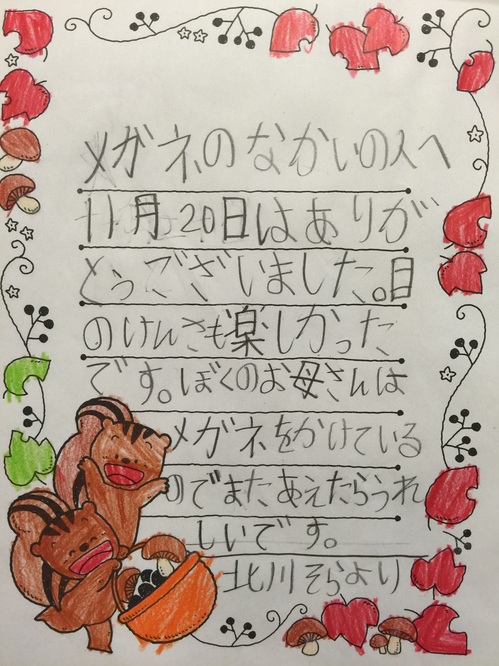 メガネのなかいの人へ
11月20日はありが
とうございました。目
のけんさも楽しかった
です。ぼくのお母さんは
メガネをかけている
のでまたあえたらうれ
しいです。
北川そらより